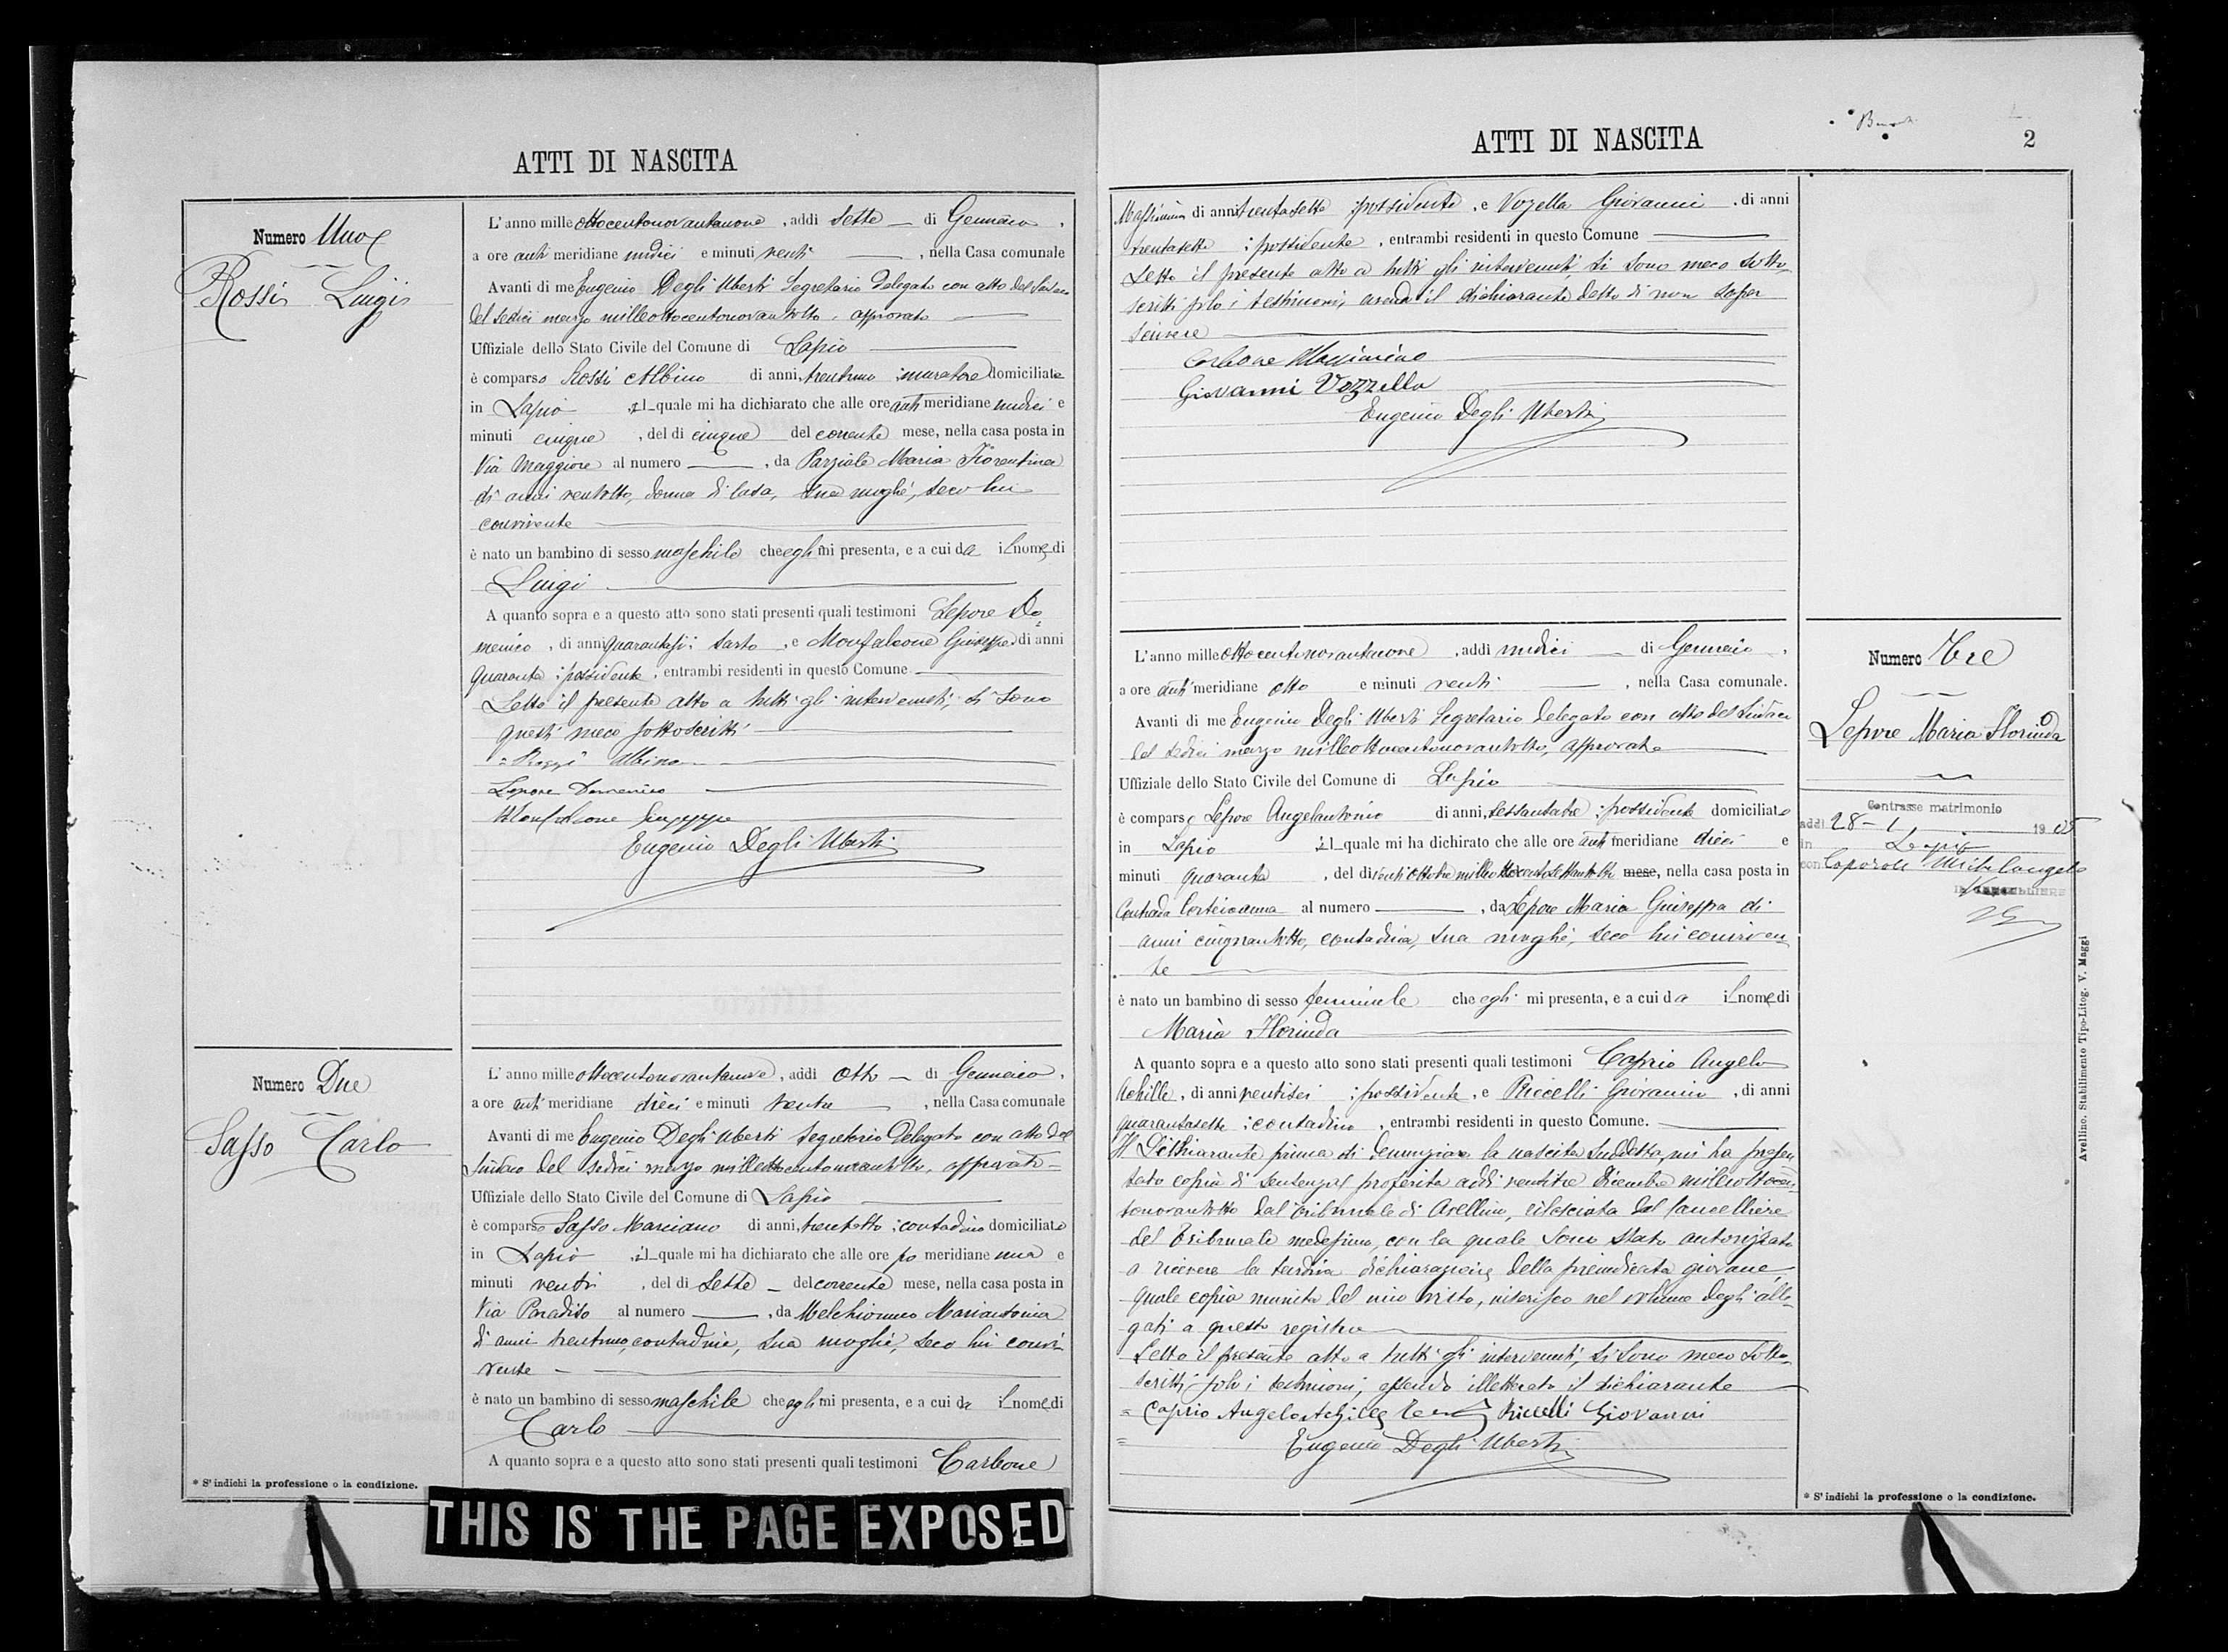 ATTI DI NASCITA
Numero Uno
Rossi Luigi
L'anno mille ottocentonovantanove, addì sette di Gennaio,
a ore anti meridiane undici e minuti venti, nella Casa comunale
Avanti di me Eugenio Degli Uberti Segretario delegato con atto del Sindaco
del sedici marzo milleottocentonovantotto, approvato
Uffiziale dello Stato Civile del Comune di Lapio
è comparso Rossi Albino di anni, trentuno muratore domiciliato
in Lapio, il quale mi ha dichiarato che alle ore anti meridiane undici e
minuti cinque, del dì cinque del corrente mese, nella casa posta in
Via Maggiore al numero, da Parziale Maria Fiorentina
di anni ventotto, donna di casa, sua moglie, seco lui
convivente
è nato un bambino di sesso maschile che egli mi presenta, e a cui da il nome di
Luigi
A quanto sopra e a questo atto sono stati presenti quali testimoni Lepore Do
menico, di anni quarantasei, sarto, e Monfalcone Giuseppe di anni
quaranta, possidente, entrambi residenti in questo Comune
Letto il presente atto a tutti gli intervenuti, si sono
questi meco sottoscritti
Albino
Lepore Domenico
Monfalcone Giuseppe
Eugenio Degli Uberti
Numero Due
Sasso Carlo
L'anno mille ottocentonovantanove, addì otto di Gennaio,
a ore anti meridiane dieci e minuti trenta, nella Casa comunale
Avanti di me Eugenio Degli Uberti Segretario delegato con atto del
Sindaco del sedici marzo milleottocentonovantotto, approvato
Uffiziale dello Stato Civile del Comune di Lapio
è comparso Sasso Marciano di anni, trentotto contadino domiciliato
in Lapio, il quale mi ha dichiarato che alle ore po meridiane una e
minuti venti, del dì sette del corrente mese, nella casa posta in
Via Paradiso al numero, da Melchionno Mariantonia
di anni trentuno, contadina, sua moglie, seco lui convi
vente
è nato un bambino di sesso maschile che egli mi presenta, e a cui da il nome di
Carlo
A quanto sopra e a questo atto sono stati presenti quali testimoni Carbone
* S'indichi la professione o la condizione.
THIS IS THE PAGE EXPOSED
ATTI DI NASCITA
2
Massimino di anni trentasette possidente, e Vozella Giovanni, di anni
trentasette possidente, entrambi residenti in questo Comune
Letto il presente atto a tutti gli intervenuti, si sono meco sotto
scritti solo i testimoni, avendo il dichiarante detto di non saper
scrivere
Carbone Massimino
Giovanni Vozzella
Eugenio Degli Uberti
Numero Tre
Lepore Maria Florinda
L'anno mille ottocentonovantanove, addì undici di Gennaio,
a ore anti meridiane otto e minuti venti, nella Casa comunale.
Avanti di me Eugenio Degli Uberti Segretario delegato con atto del Sindaco
del sedici marzo milleottocentonovantotto, approvato
Uffiziale dello Stato Civile del Comune di Lapio
è comparso Lepore Angelantonio di anni, sessantatre possidente domiciliato
in Lapio il quale mi ha dichirato che alle ore anti meridiane dieci e
minuti quaranta, del dì mese, nella casa posta in
Contrada al numero, da Lepore Maria Giuseppa di
anni cinquantotto, contadina, sua moglie, seco lui conviven
te
è nato un bambino di sesso femminile che egli mi presenta, e a cui da il nome di
Maria Florinda
A quanto sopra e a questo atto sono stati presenti quali testimoni Caprio Angelo
Achille, di anni ventisei possidente, e Riccelli Giovanni, di anni
quarantasette contadino, entrambi residenti in questo Comune.
Il Dichiarante prima di denunziare la nascita suddetta, mi ha presen
tato copia di sentenza proferita addì ventitre Dicembre milleottocen
tonovantotto dal tribunale di Avellino, rilasciata dal Cancelliere
del Tribunale medesimo, con la quale sono stato autorizzato
a ricevere la tardiva dichiarazione della preindicata giovane,
quale copia munita del mio visto, inserisco nel volume degli alle
gati a questo registro
Letto il presente atto a tutti gli intervenuti, si sono meco sotto
scritti solo i testimoni, essendo illetterato il dichiarante
Caprio Angelo Achille Riccelli Giovanni
Eugenio Degli Uberti
Contrasse matrimonio
addì 28-1 1905
in Lapio
con Caporale Michelangelo
* S'indichi la professione o la condizione.
Avellino. Stabilimento Tipo-Litog. V. Maggi